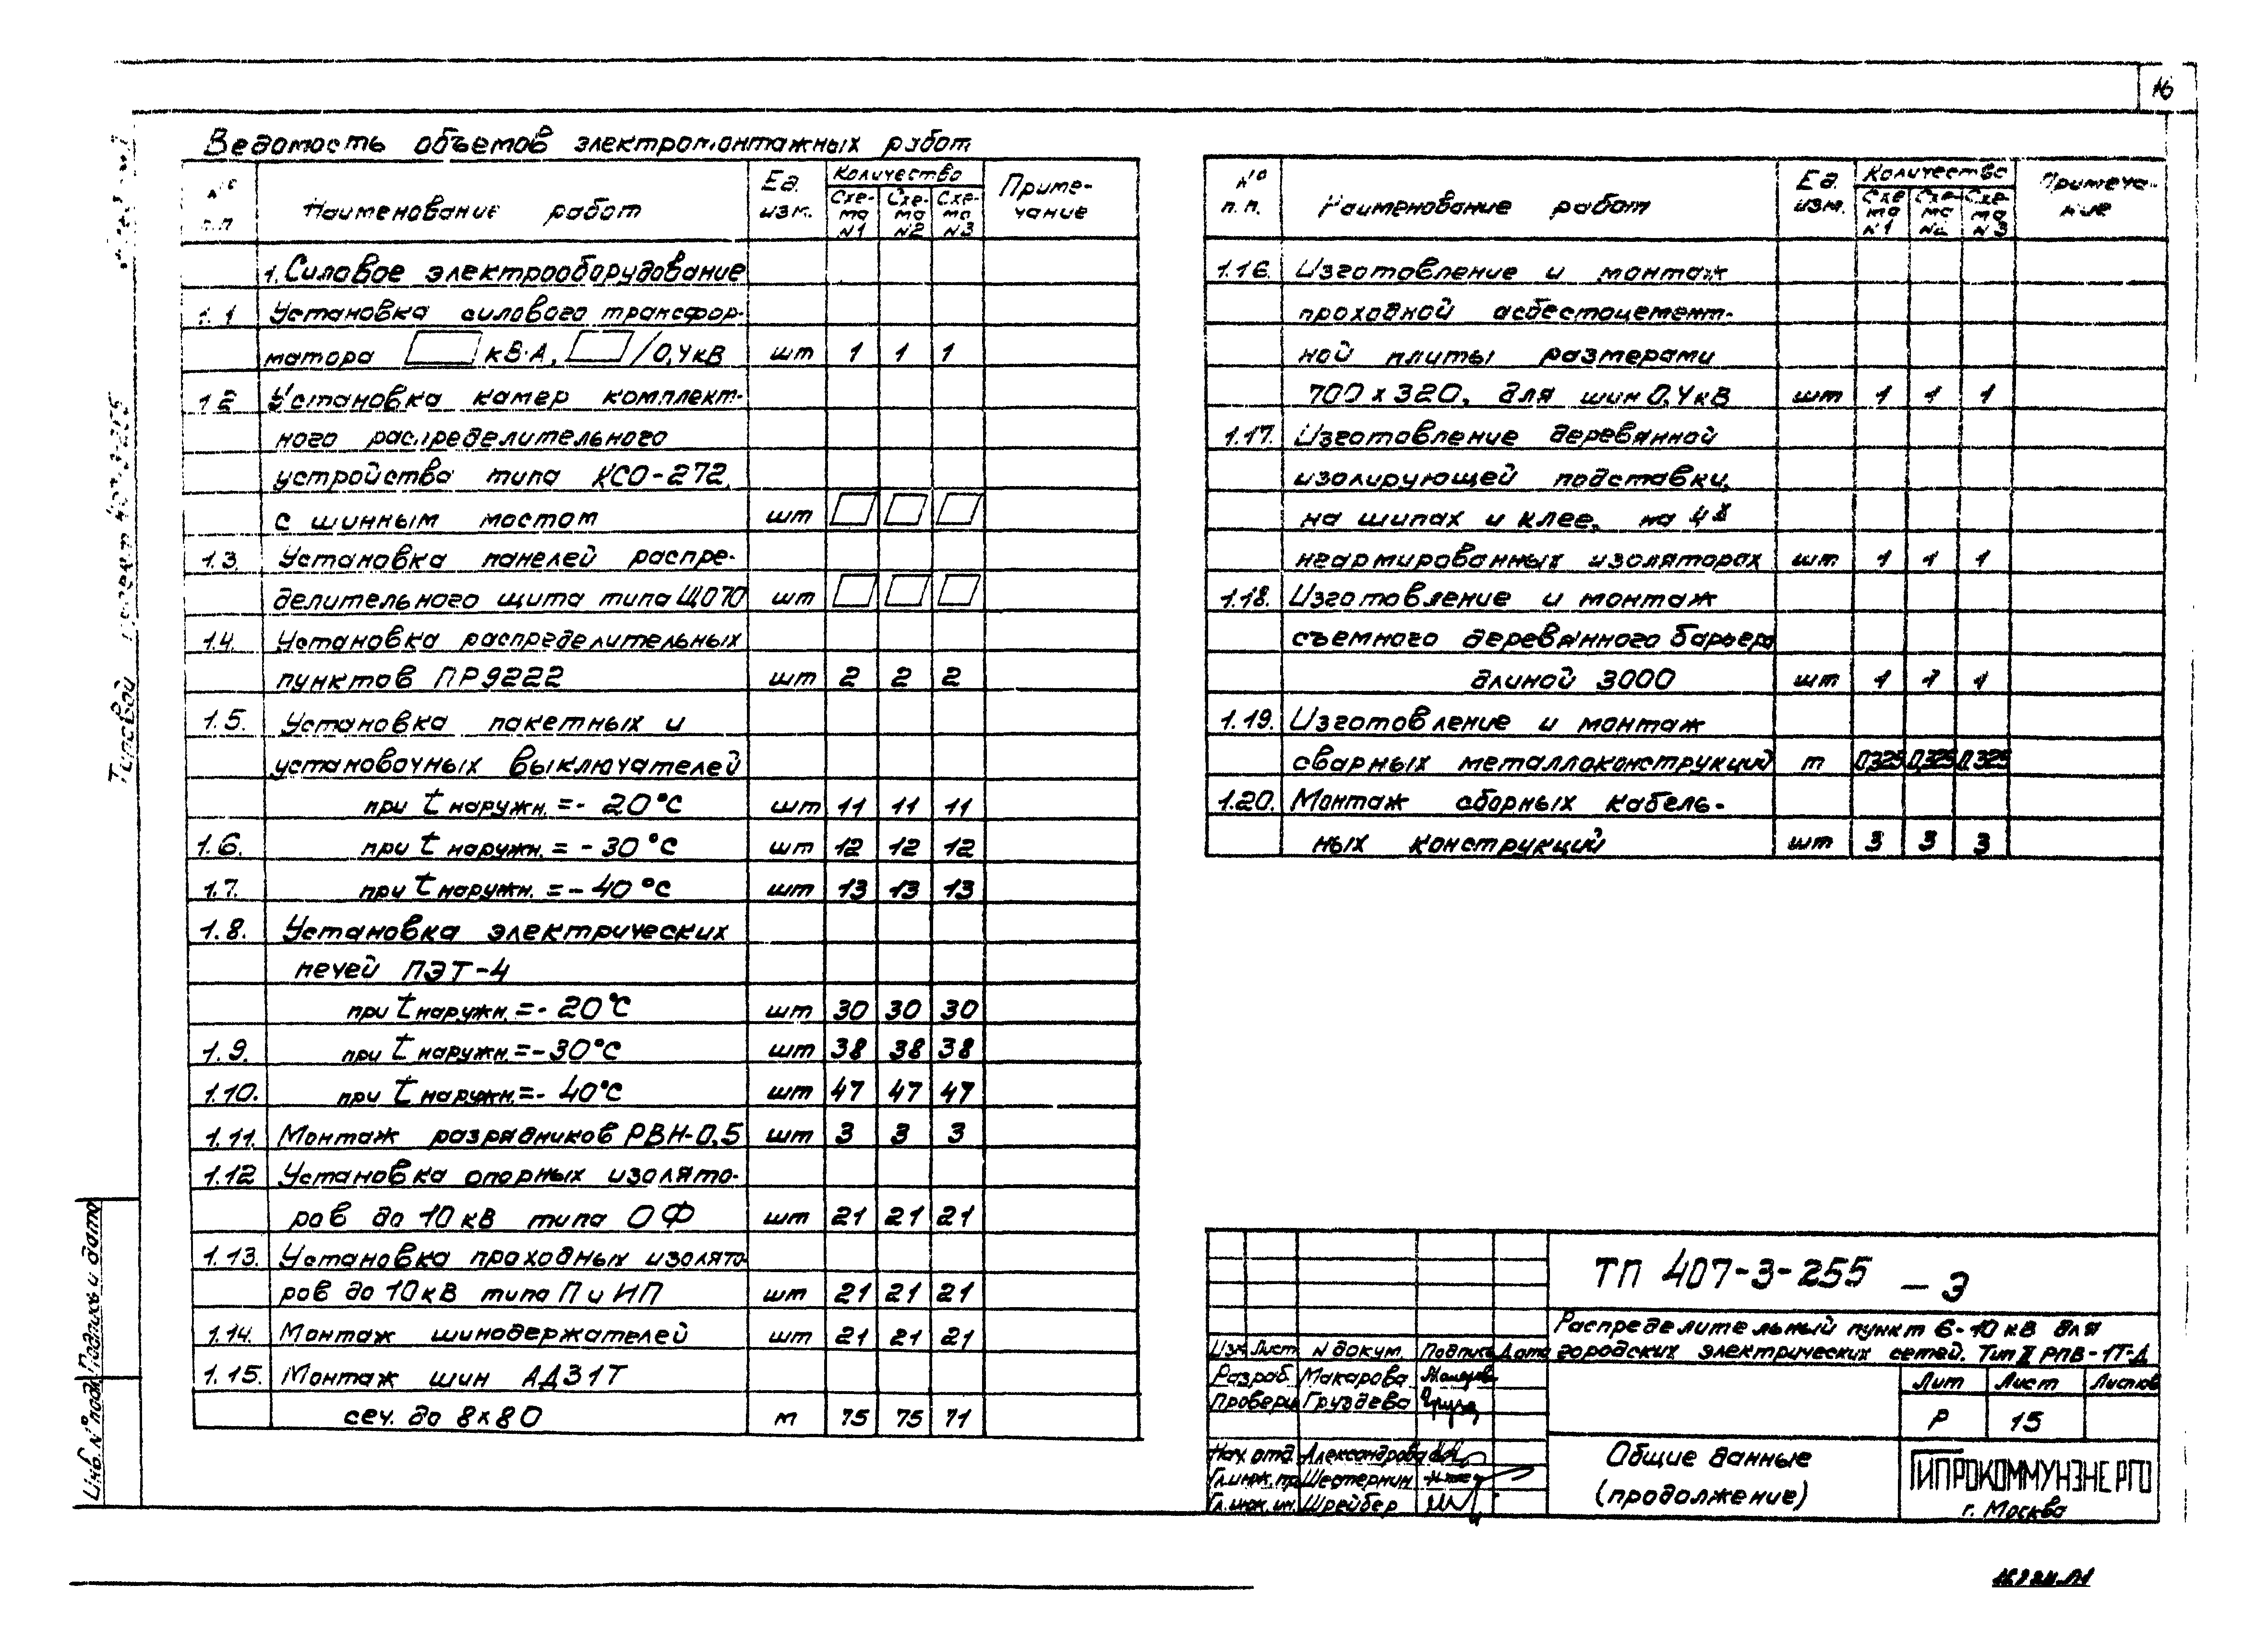 16
Ведомость объемов электромонтажных работ
№ п.п Наименование работ Ед. изм. Количество Приме-чание
Схе-ма N1 Схе-ма N2 Схе-ма N3
1. Силовое электрооборудование
1.1 Установка силового трансфор-
матора кВ·А, /0,4кВ шт 1 1 1
1.2 Установка камер комплект-
ного распределительного
устройства типа КСО-272,
с шинным мостом шт
1.3. Установка панелей распре-
делительного щита типа ЩО70 шт
1.4. Установка распределительных
пунктов ПР9222 шт 2 2 2
1.5. Установка пакетных и
установочных выключателей
при t наружн. =- 20°С шт 11 11 11
1.6. при t наружн. = - 30°С шт 12 12 12
1.7. при t наружн. = - 40°С шт 13 13 13
1.8. Установка электрических
печей ПЭТ-4
при t наружн. =- 20°С шт 30 30 30
1.9. при t наружн. =-30°С шт 38 38 38
1.10. при t наружн. =- 40°С шт 47 47 47
1.11. Монтаж разрядников РВН-0,5 шт 3 3 3
1.12 Установка опорных изолято-
ров до 10кВ типа ОФ шт 21 21 21
1.13. Установка проходных изолято-
ров до 10кВ типа П и ИП шт 21 21 21
1.14. Монтаж шинодержателей шт 21 21 21
1.15. Монтаж шин АД31Т
сеч. до 8х80 м 75 75 71
№ п.п. Наименование работ Ед. изм. Количество Примеча-ние
Схе-ма N1 Схе-ма N2 Схе-ма N3
1.16. Изготовление и монтаж
проходной асбестоцемент-
ной плиты размерами
700 х 320, для шин 0,4кВ шт 1 1 1
1.17. Изготовление деревянной
изолирующей подставки,
на шипах и клее, на 4х
неармированных изоляторах шт 1 1 1
1.18. Изготовление и монтаж
съемного деревянного барьера
длиной 3000 шт 1 1 1
1.19. Изготовление и монтаж
сварных металлоконструкций т 0,325 0,325 0,325
1.20. Монтаж сборных кабель-
ных конструкций шт 3 3 3
ТП 407-3-255 – Э
Распределительный пункт 6-10 кВ для
городских электрических сетей. Тип II РПВ-1Т-Д
Изм Лист N докум. Подпись Дата
Разраб. Макарова
Проверил Груздева
Нач. отд. Александрова
Гл.инж.пр. Шестернин
Гл.инж.ин. Шрейбер
Лит Лист Листов
Р 15
Общие данные
(продолжение)
ГИПРОКОММУНЭНЕРГО
г. Москва
Типовой проект 407-3-255
Подпись и дата
Инв. N° подл.